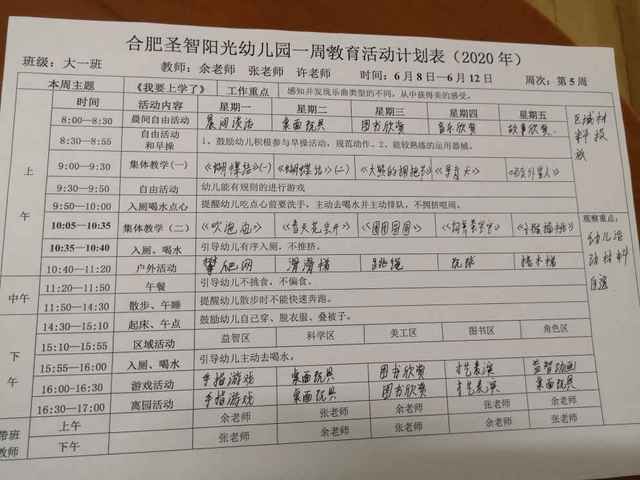 合肥圣智阳光幼儿园一周教育活动计划表（2020 年）
班级：大一班 教师：余老师 张老师 许老师 时间：6 月 8 日—6 月 12 日 周次：第 5 周
本周主题 《我要上学了》 工作重点 感知并发现乐曲类型的不同，从中获得美的感受。
时间 活动内容 星期一 星期二 星期三 星期四 星期五
8:00—8:30 晨间自由活动 晨间谈话 桌面玩具 图书欣赏 音乐欣赏 故事欣赏
区域材料投放
8:30—8:55 自由活动和早操 1、鼓励幼儿积极参与早操活动，规范动作。2、能较熟练的运用器械。
上午
9:00—9:30 集体教学(一) 《蝴蝶结》(一) 《蝴蝶结》(二)
9:30—9:50 自由活动 幼儿能有规则的进行游戏
9:50—10:00 入厕喝水点心 提醒幼儿吃点心前要洗手，主动去喝水并主动排队，不拥挤喧闹。
10:05—10:35 集体教学（二） 《吹泡泡》 《圆圆圆圆》
观察重点：
幼儿活动材料自选
10:35—10:40 入厕、喝水 引导幼儿有序入厕，不推挤。
10:40—11:20 户外活动 攀爬网 滑滑梯 跳绳 玩球
中午
11:20—11:50 午餐 引导幼儿不挑食、不偏食。
11:50—14:30 散步、午睡 提醒幼儿散步时不能快速奔跑。
下午
14:30—15:10 起床、午点 鼓励幼儿自己穿、脱衣服、叠被子。
15:10—15:55 区域活动 益智区 科学区 美工区 图书区 角色区
15:55—16:00 入厕、喝水 引导幼儿主动去喝水；
16:00—16:30 游戏活动 手指游戏 桌面玩具 图书欣赏 才艺表演
16:30—17:00 离园活动 手指游戏 桌面玩具 图书欣赏 才艺表演 桌面玩具
带班教师
上午 余老师 张老师 余老师 张老师 余老师
下午 张老师 余老师 张老师 余老师 张老师